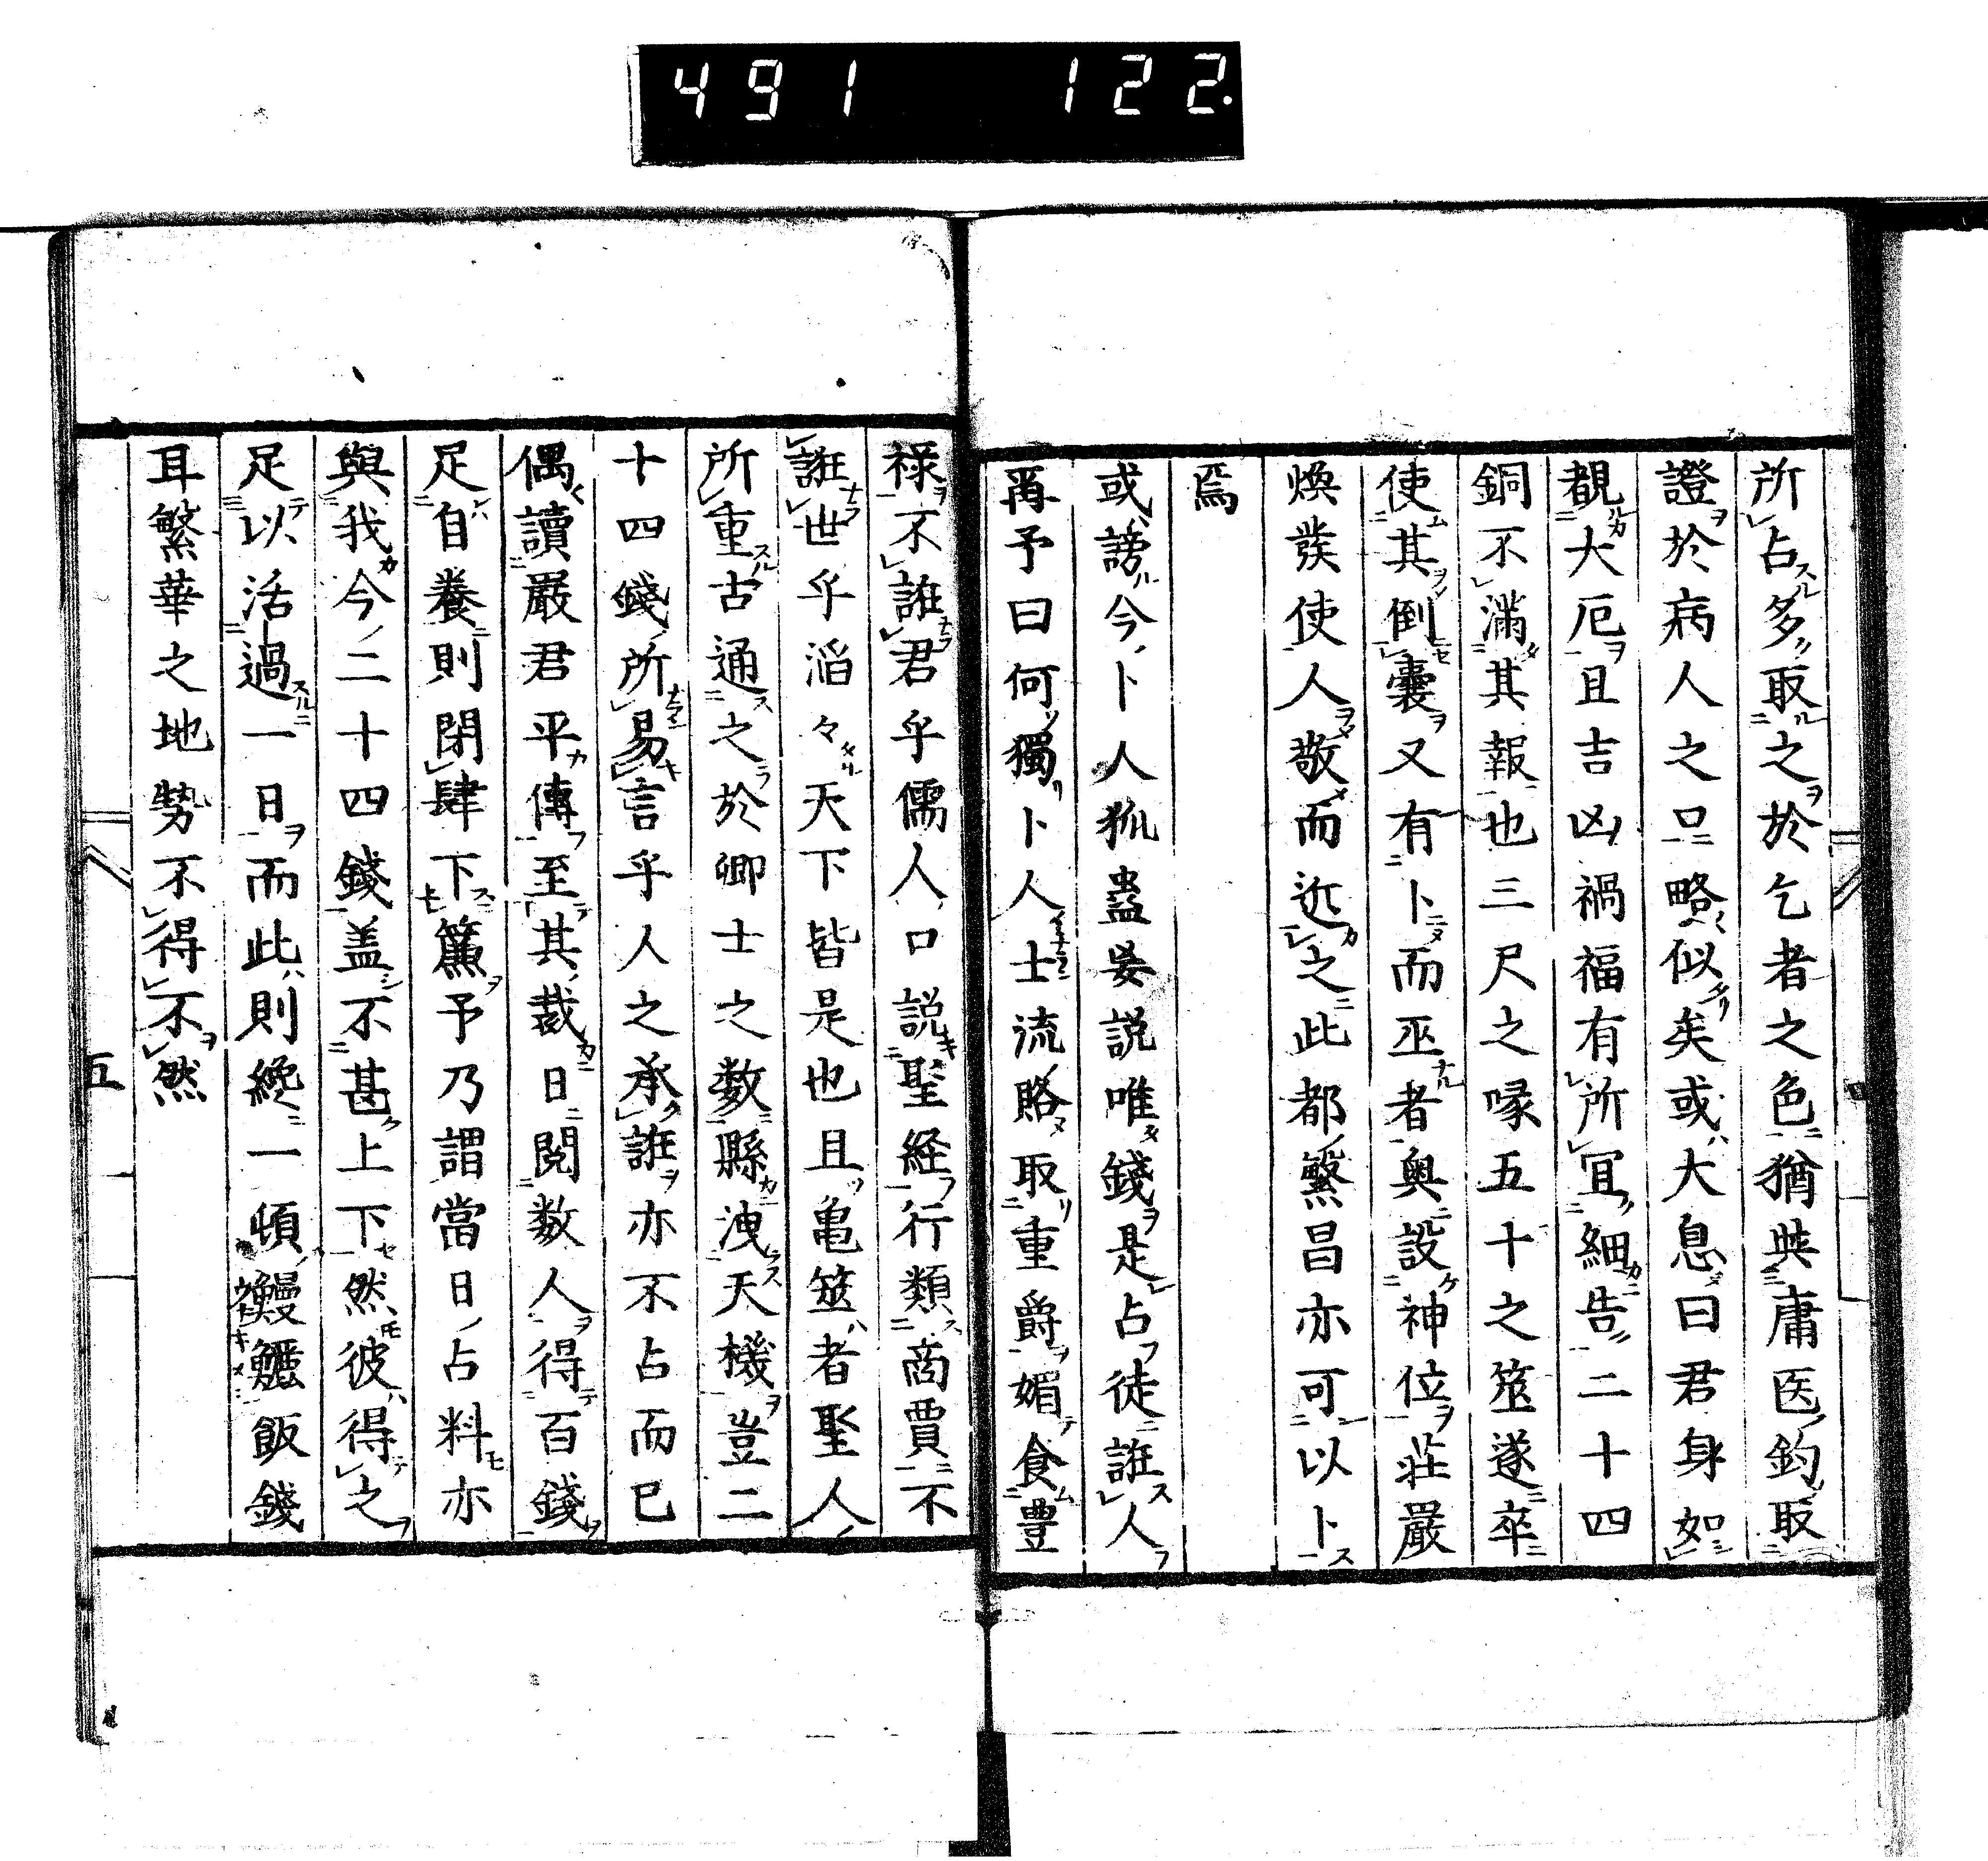 491 122.
所占多取之於乞者之色猶与庸医鈞取
證於病人之口略似矣或大息曰君身如
覩大厄且吉凶禍福有所冝細告二十四
銅不滿其報也三尺之喙五十之筮遂卒
使其倒嚢又有卜而巫者奥設神位荘嚴
煥発使人敬而近之此都繁昌亦可以卜
焉
或謗今卜人狐蠱妄説唯錢是占徒誑人
爾予曰何獨卜人士流賂取重爵媚食豊
禄不誑君乎儒人口説聖経行類商賈不
誑世乎滔々天下皆是也且亀筮者聖人
所重古通之於卿士之数縣洩天機豈二
十四錢所易言乎人之承誑亦不占而已
偶讀嚴君平傳至其裁日閲数人得百錢
足自養則閉肆下簾予乃謂當日占料亦
與我今二十四錢盖不甚上下然彼得之
足以活過一日而此則纔一頓鰻鱺飯錢
耳繁華之地勢不得不然
五